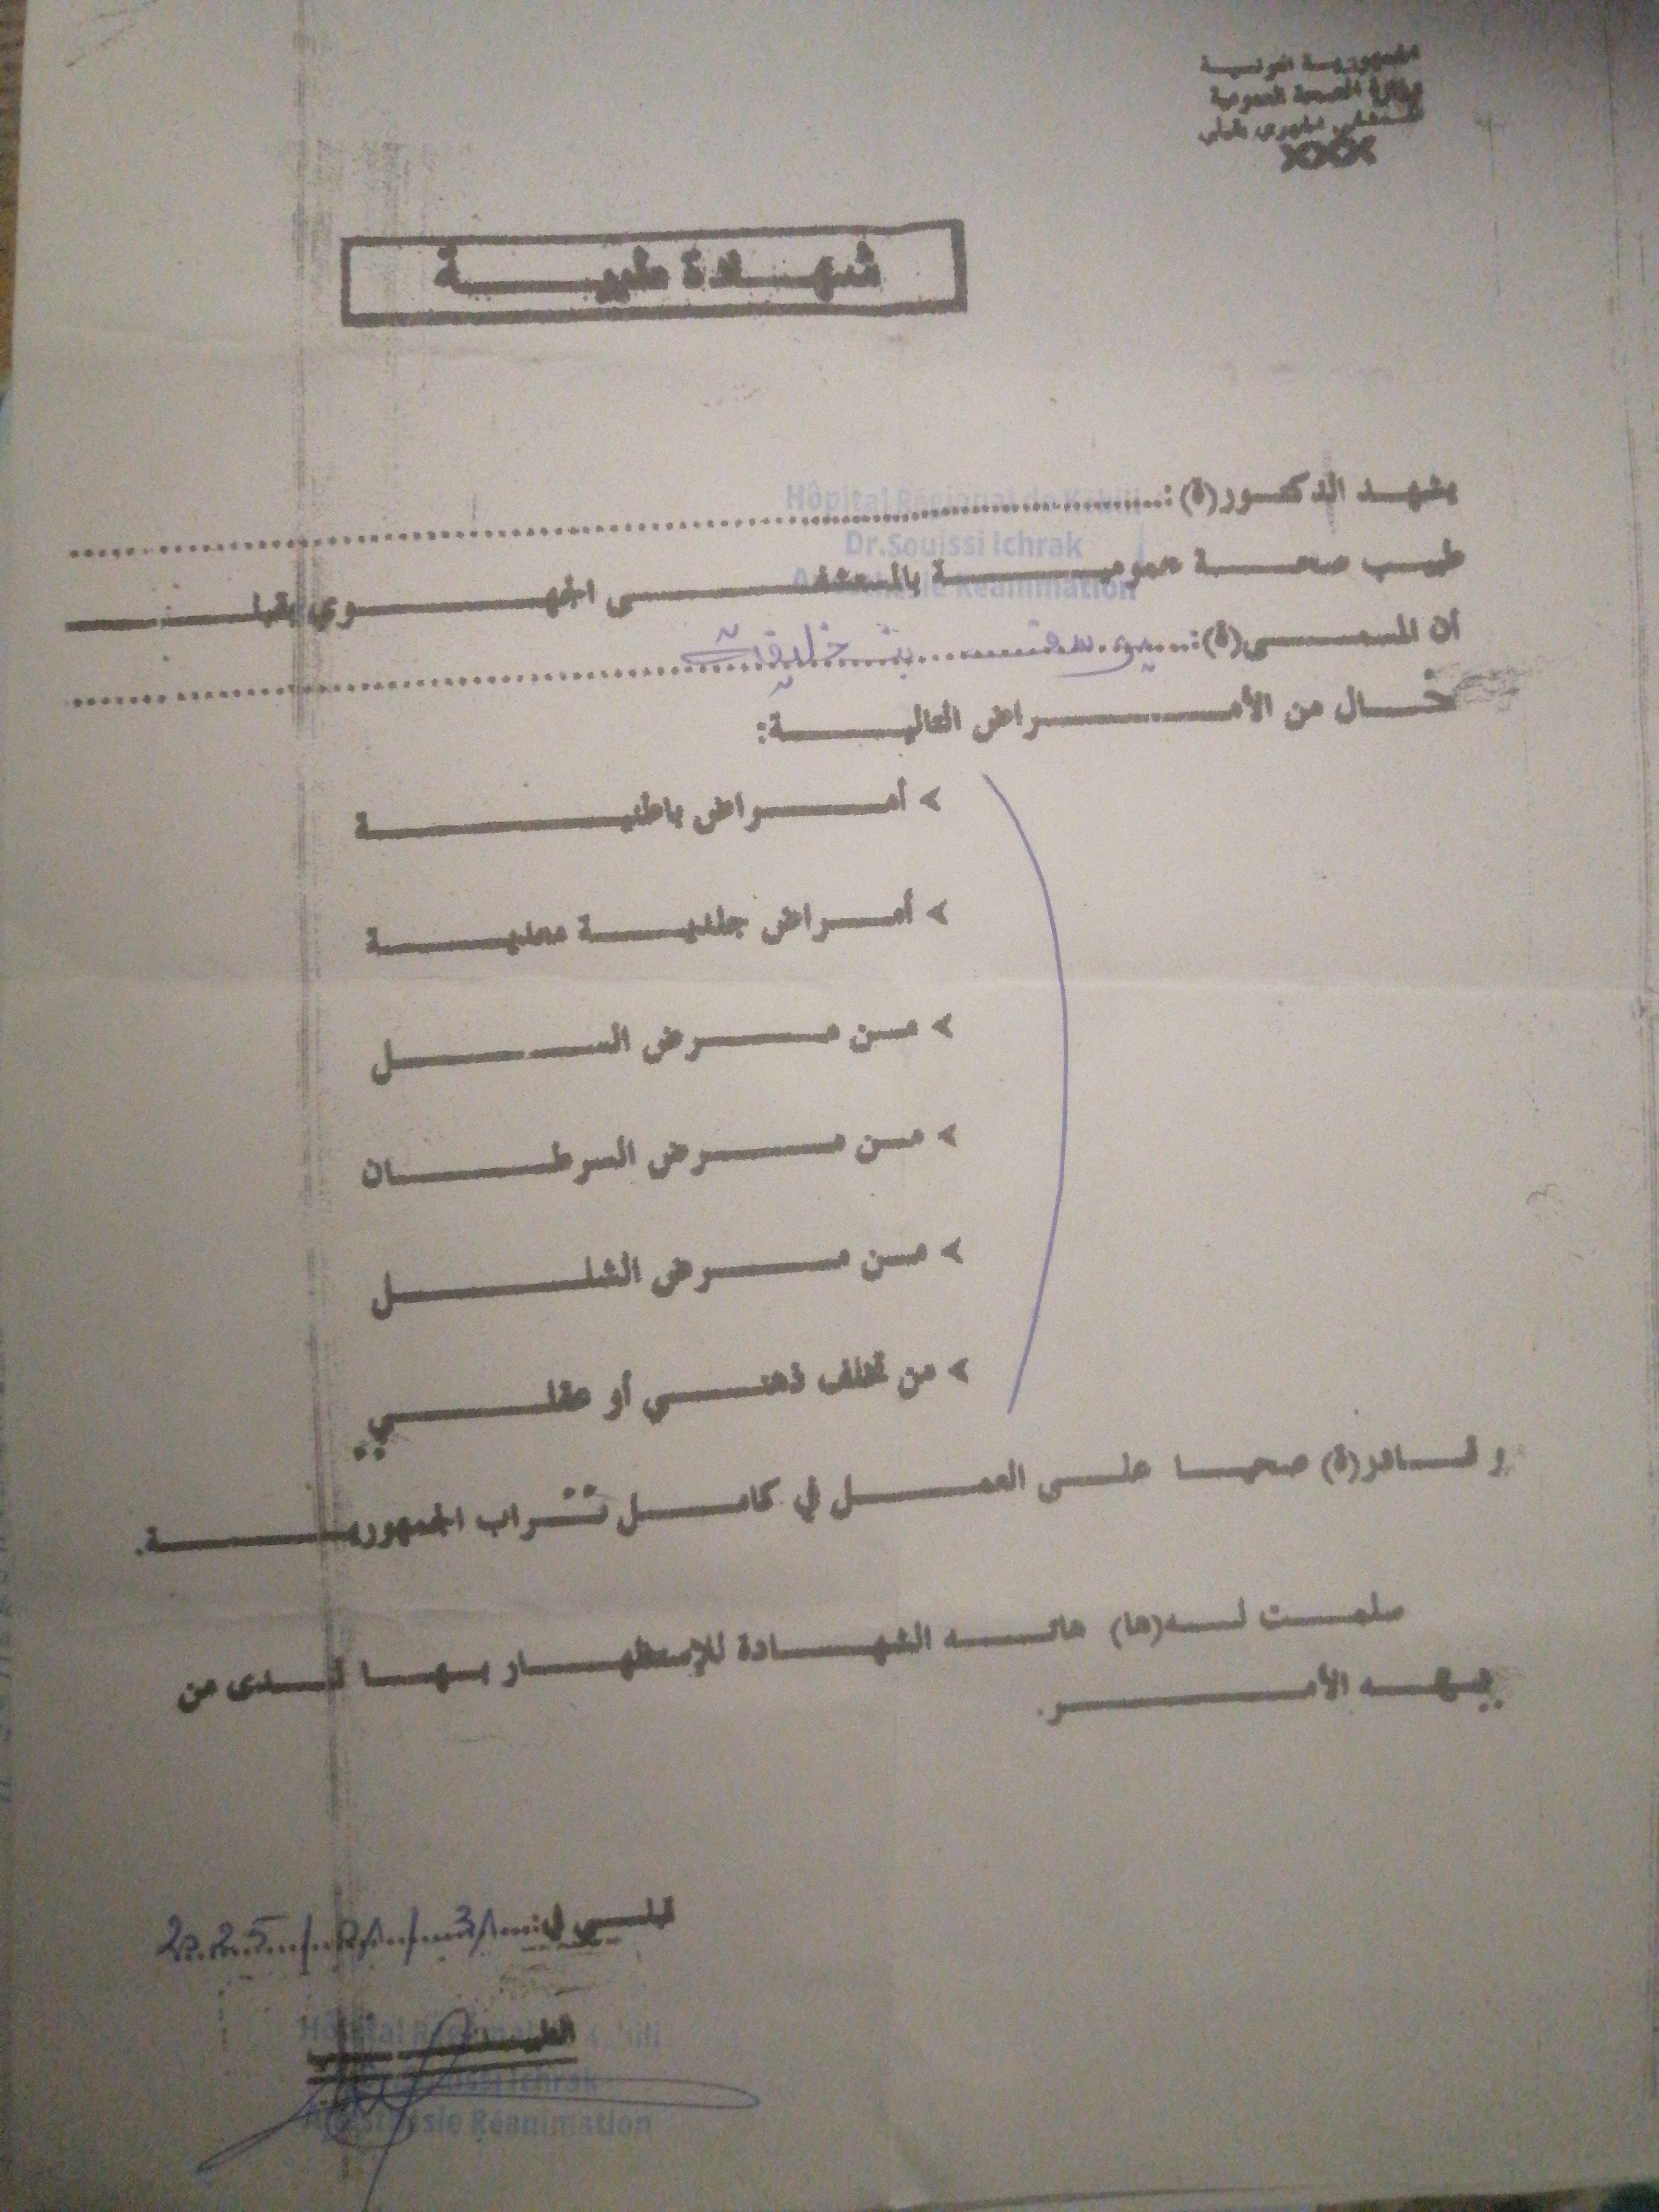 الجمهورية التونسية
وزارة الصحة العمومية
المستشفى الجهوي بقبلي
XXX
شهادة طبية
Hôpital Régional de Kebili
يشهد الدكتور(ة):
Dr.Souissi Ichrak
طبيب صحة عمومية بالمستشفى الجهوي بقبلي
Anesthésie Réanimation
أن المسمى(ة): يوسف بن خليفة
خال من الأمراض التالية:
> أمراض باطنية
> أمراض جلدية معدية
> من مرض السل
> من مرض السرطان
> من مرض الشلل
> من تخلف ذهني أو عقلي
و قادر(ة) صحيا على العمل في كامل تراب الجمهورية.
سلمت له(ها) هاته الشهادة للإستظهار بها لدى من
يهمه الأمر.
قبلي في: 2025
الطبيب
Hôpital Régional de Kebili
Dr.Souissi Ichrak
Anesthésie Réanimation